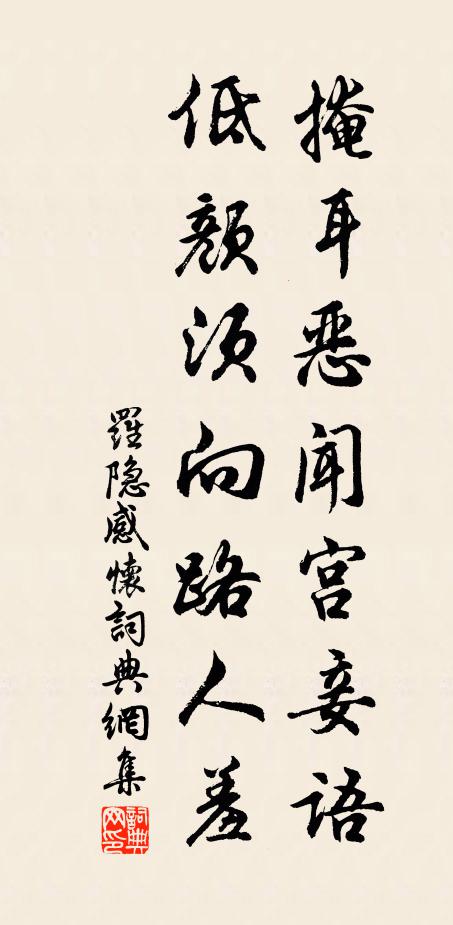 掩耳恶闻宫妾语
低颜须向路人羞
羅隐感懷詞典網集
詞典网印